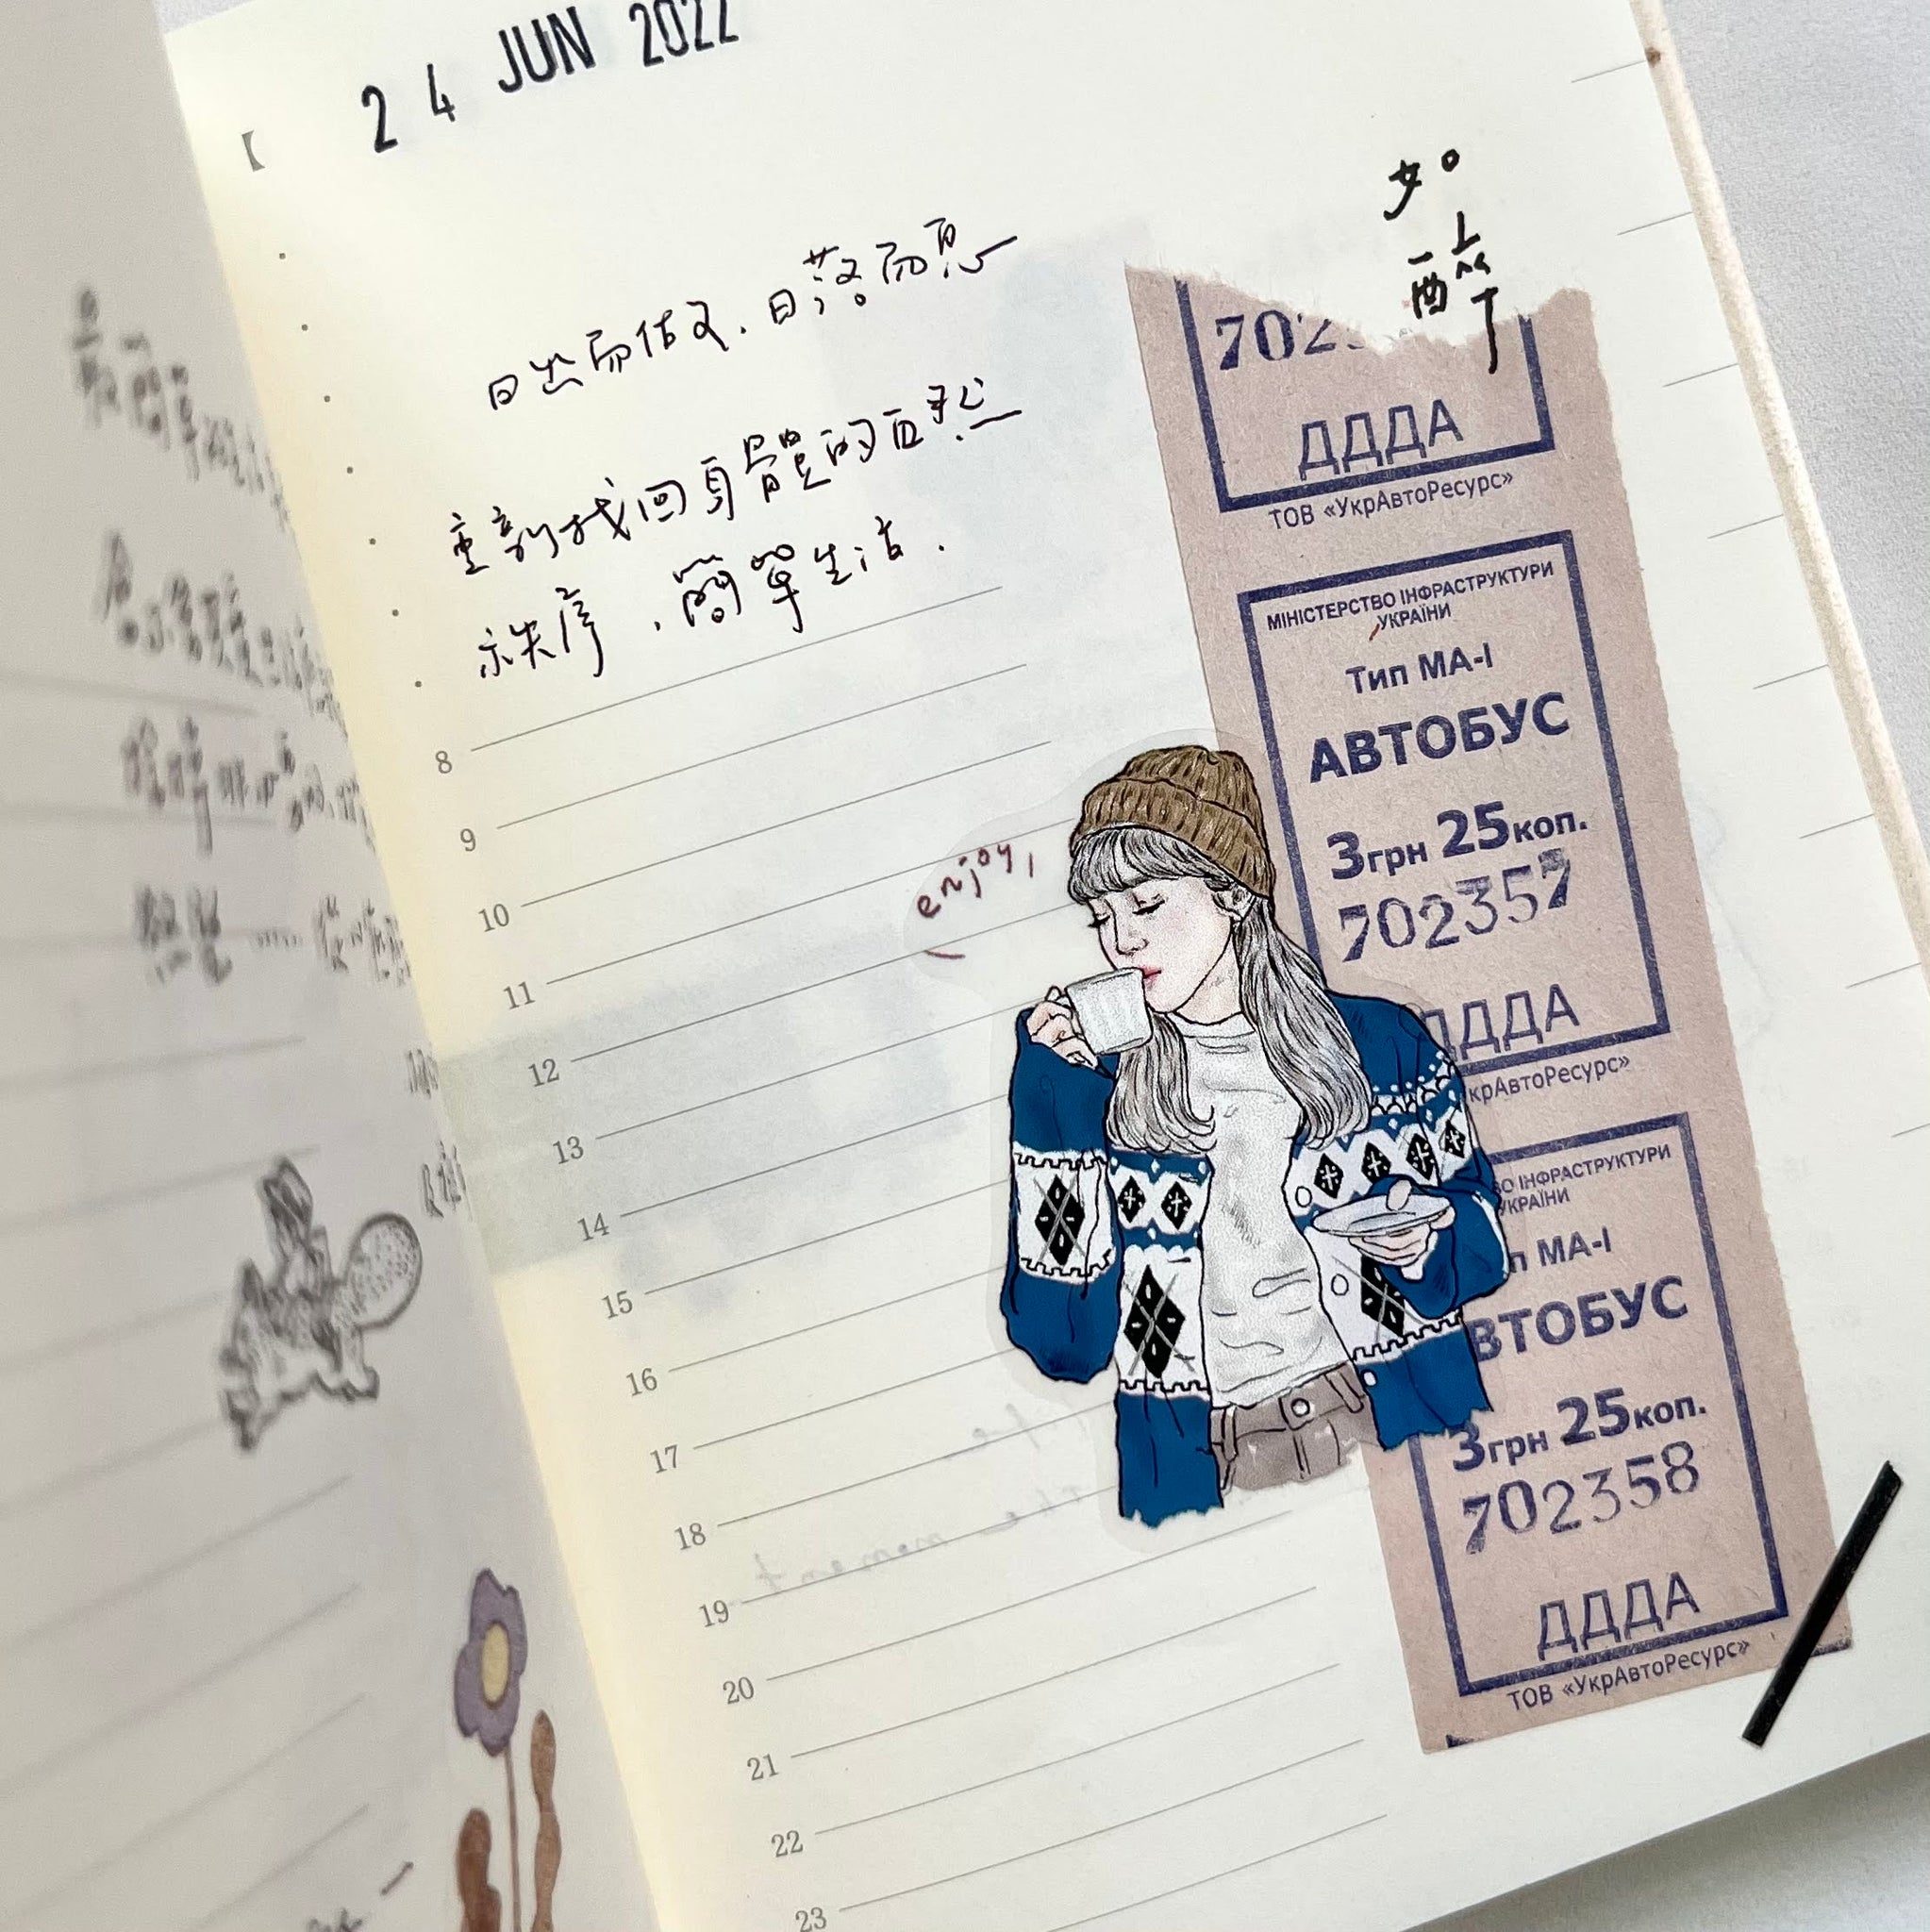 24 JUN 2022
日出而作文.日落而息
重新找回身體的自然
秩序.簡單生活.
如
醉
702
ДДДА
ТОВ «УкрАвтоРесурс»
МІНІСТЕРСТВО ІНФРАСТРУКТУРИ
УКРАЇНИ
Тип МА-І
АВТОБУС
3грн 25коп.
702357
ДДДА
крАвтоРесурс»
ВО ІНФРАСТРУКТУРИ
УКРАЇНИ
п МА-І
ВТОБУС
3грн 25коп.
702358
ДДДА
ТОВ «УкрАвтоРесурс»
enjoy,
8
9
10
11
12
13
14
15
16
17
18
19
20
21
22
23